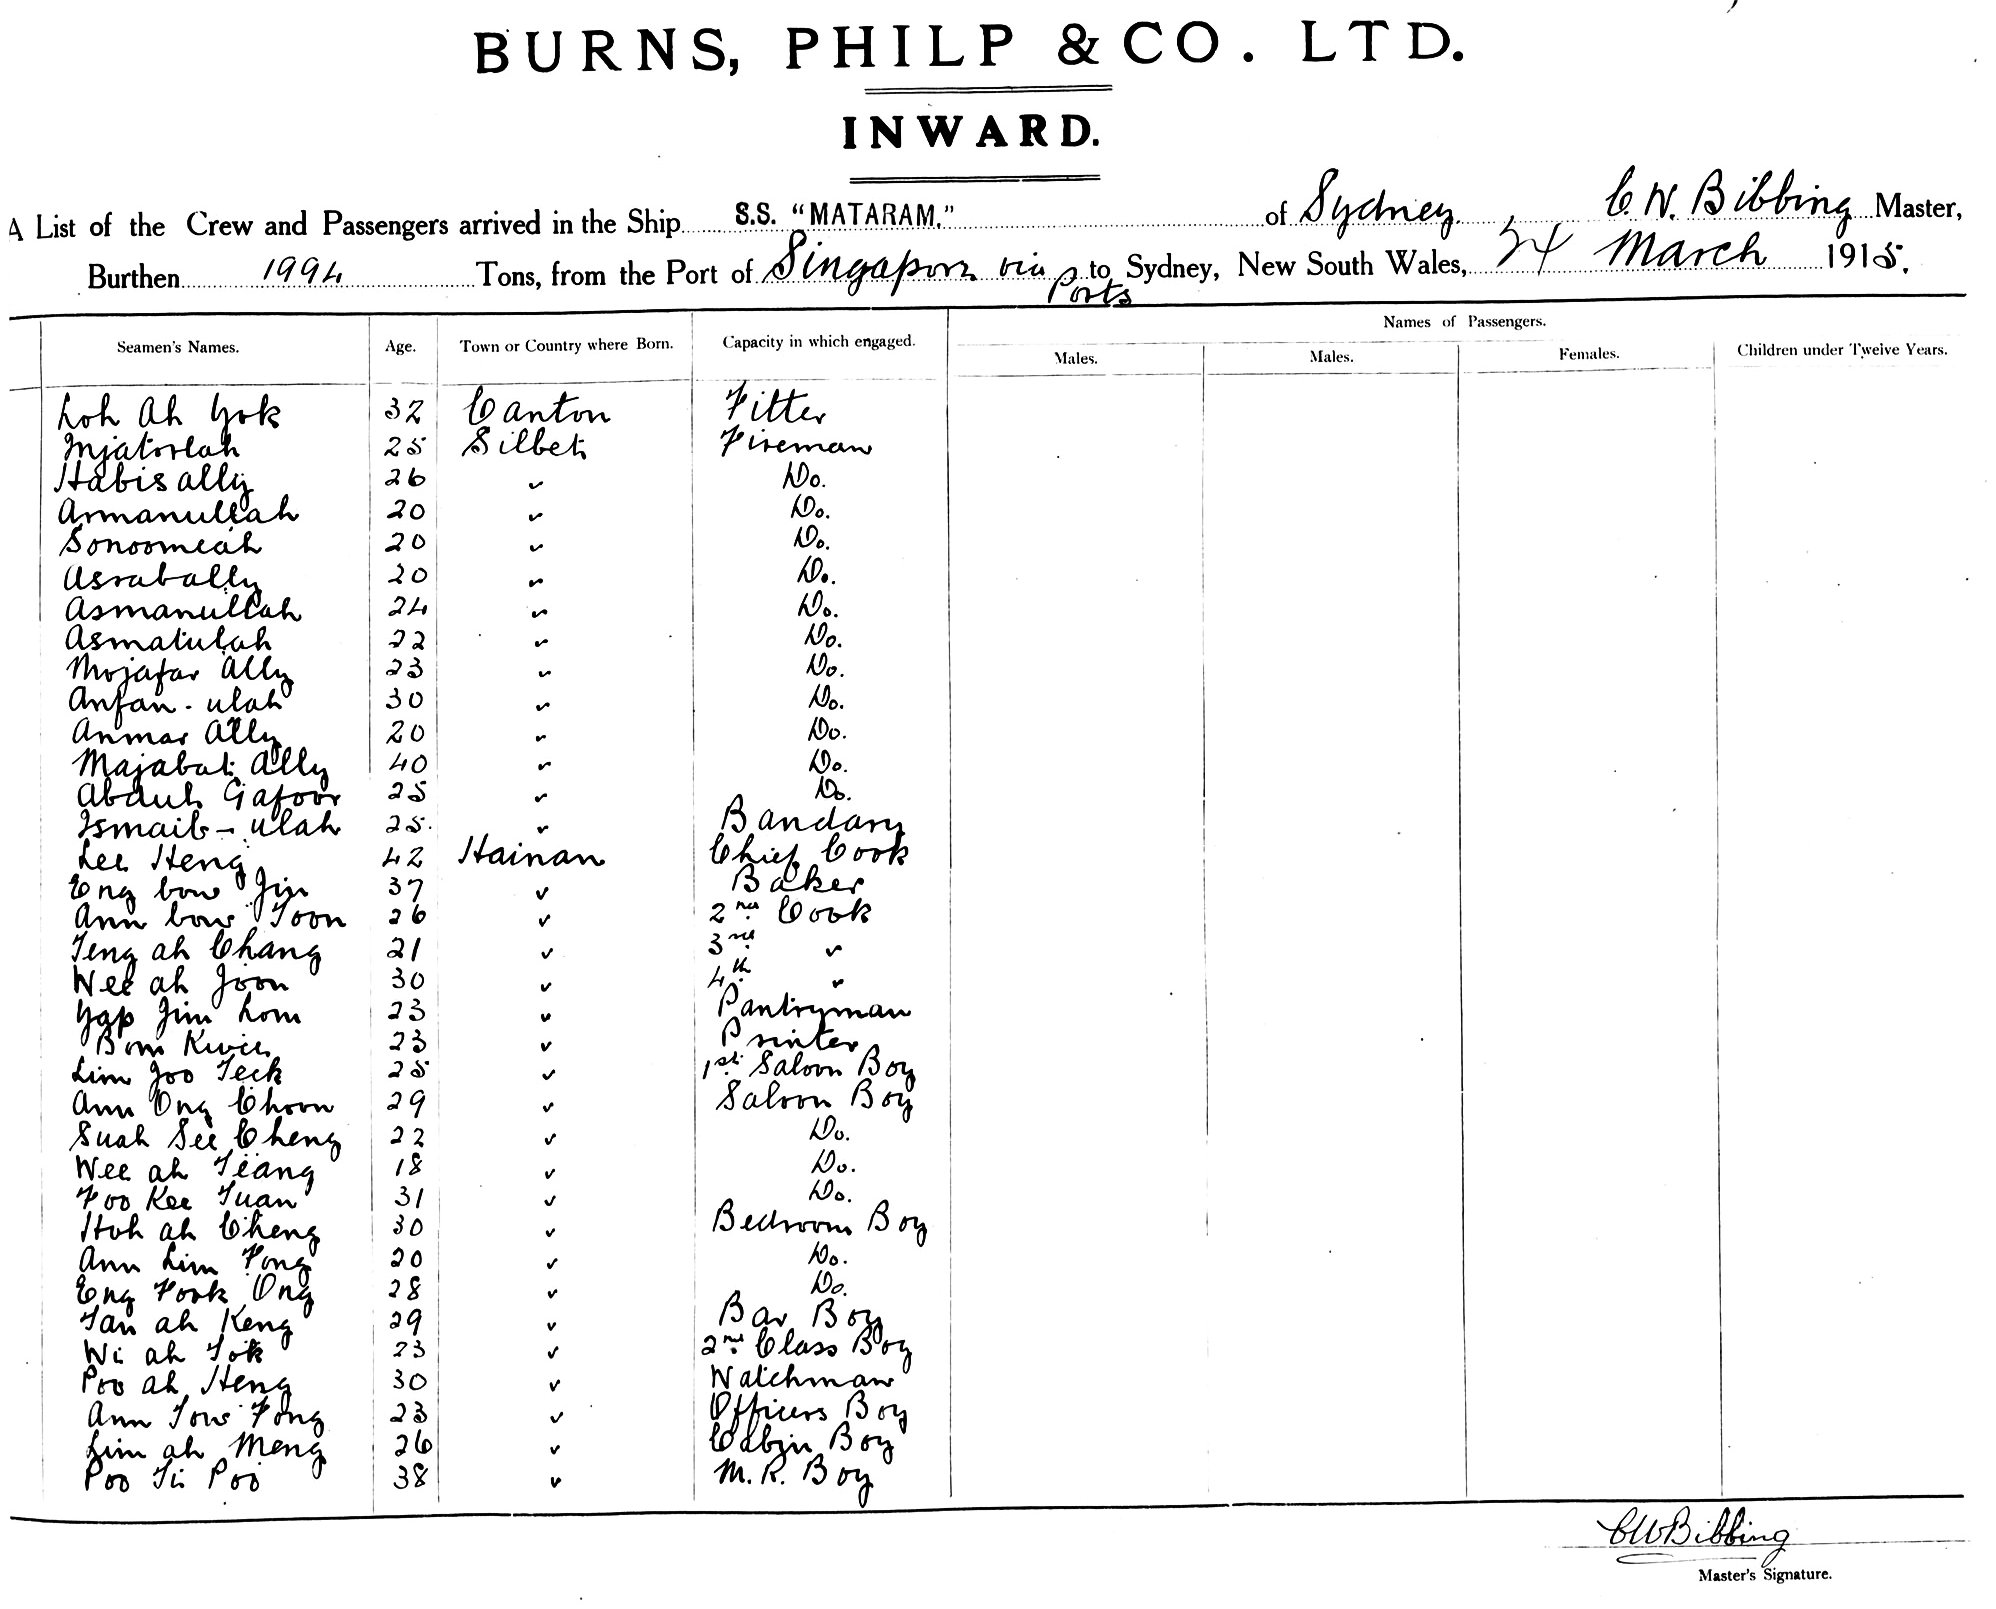 BURNS, PHILP & CO. LTD.
INWARD.
A List of the Crew and Passengers arrived in the Ship S.S. "MATARAM." of Sydney, C. W. Bibbing Master,
Burthen 1994 Tons, from the Port of Singapore via Ports to Sydney, New South Wales, 24 March 1915.
Names of Passengers.
Seamen's Names. Age. Town or Country where Born. Capacity in which engaged. Males. Males. Females. Children under Twelve Years.
Loh Ah Yok 32 Canton Fitter
25 Silhet Fireman
Habisally 26 " Do.
Armanullah 20 " Do.
Sonoomeah 20 " Do.
Asrabally 20 " Do.
Asmanullah 24 " Do.
Asmatulah 22 " Do.
Mojafar Ally 23 " Do.
Anfan-ulah 30 " Do.
Anmar Ally 20 " Do.
Majabat Ally 40 " Do.
Abdul Gafoor 25 " Do.
Ismail-ulah 25 " Bandary
Lee Heng 42 Hainan Chief Cook
Eng bow Jin 37 " Baker
Ann bow Toon 26 " 2nd Cook
Teng ah Chang 21 " 3rd "
Wee ah Joon 30 " 4th "
Yap Jim Lom 23 " Pantryman
Bom Kwee 23 " Printer
Lim Joo Teck 25 " 1st Saloon Boy
Ann Ong Choon 29 " Saloon Boy
Suah See Cheng 22 " Do.
Wee ah Teang 18 " Do.
Foo Kee Tuan 31 " Do.
Hoh ah Cheng 30 " Bedroom Boy
Ann Lim Fong 20 " Do.
Eng Fook Ong 28 " Do.
Tan ah Keng 29 " Bar Boy
Wi ah Tok 23 " 2nd Class Boy
Poo ah Heng 30 " Watchman
Ann Tow Fong 23 " Officers Boy
Lim ah Meng 26 " Cabin Boy
Poo Ti Poo 38 " M.R. Boy
CWBibbing
Master's Signature.